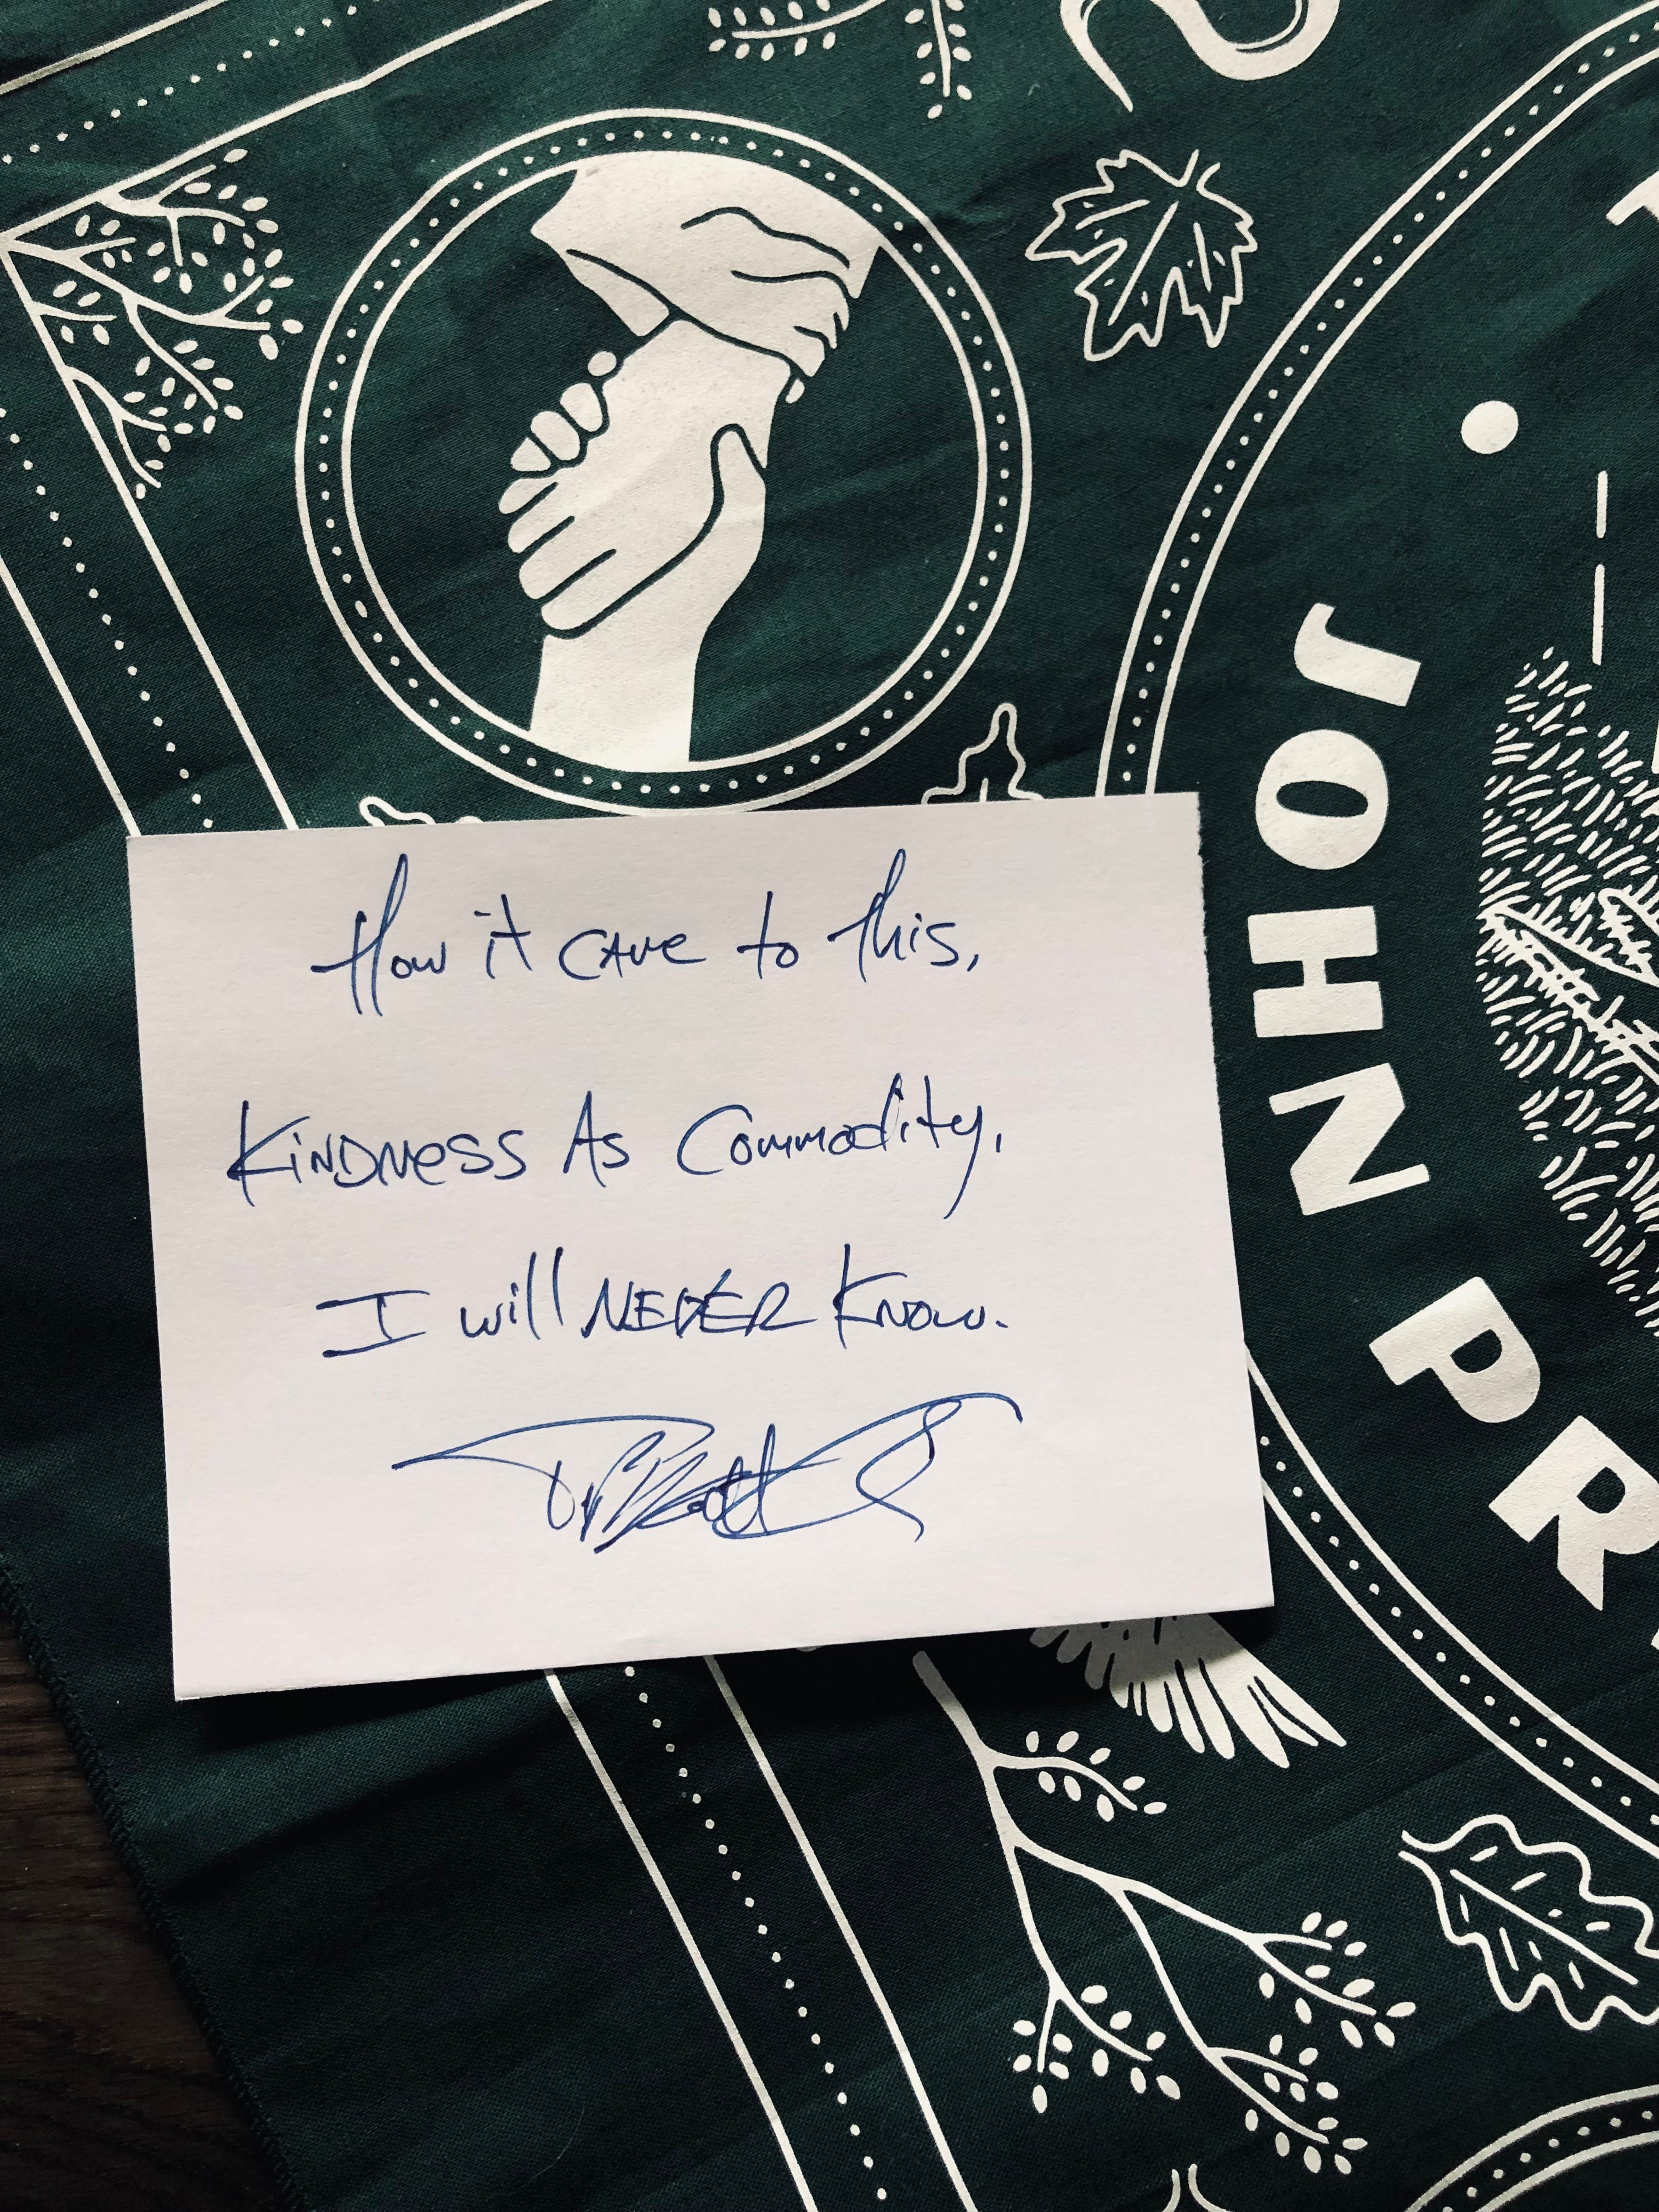 How it came to this,
Kindness As Commodity,
I will NEVER Know.
JOHN PR